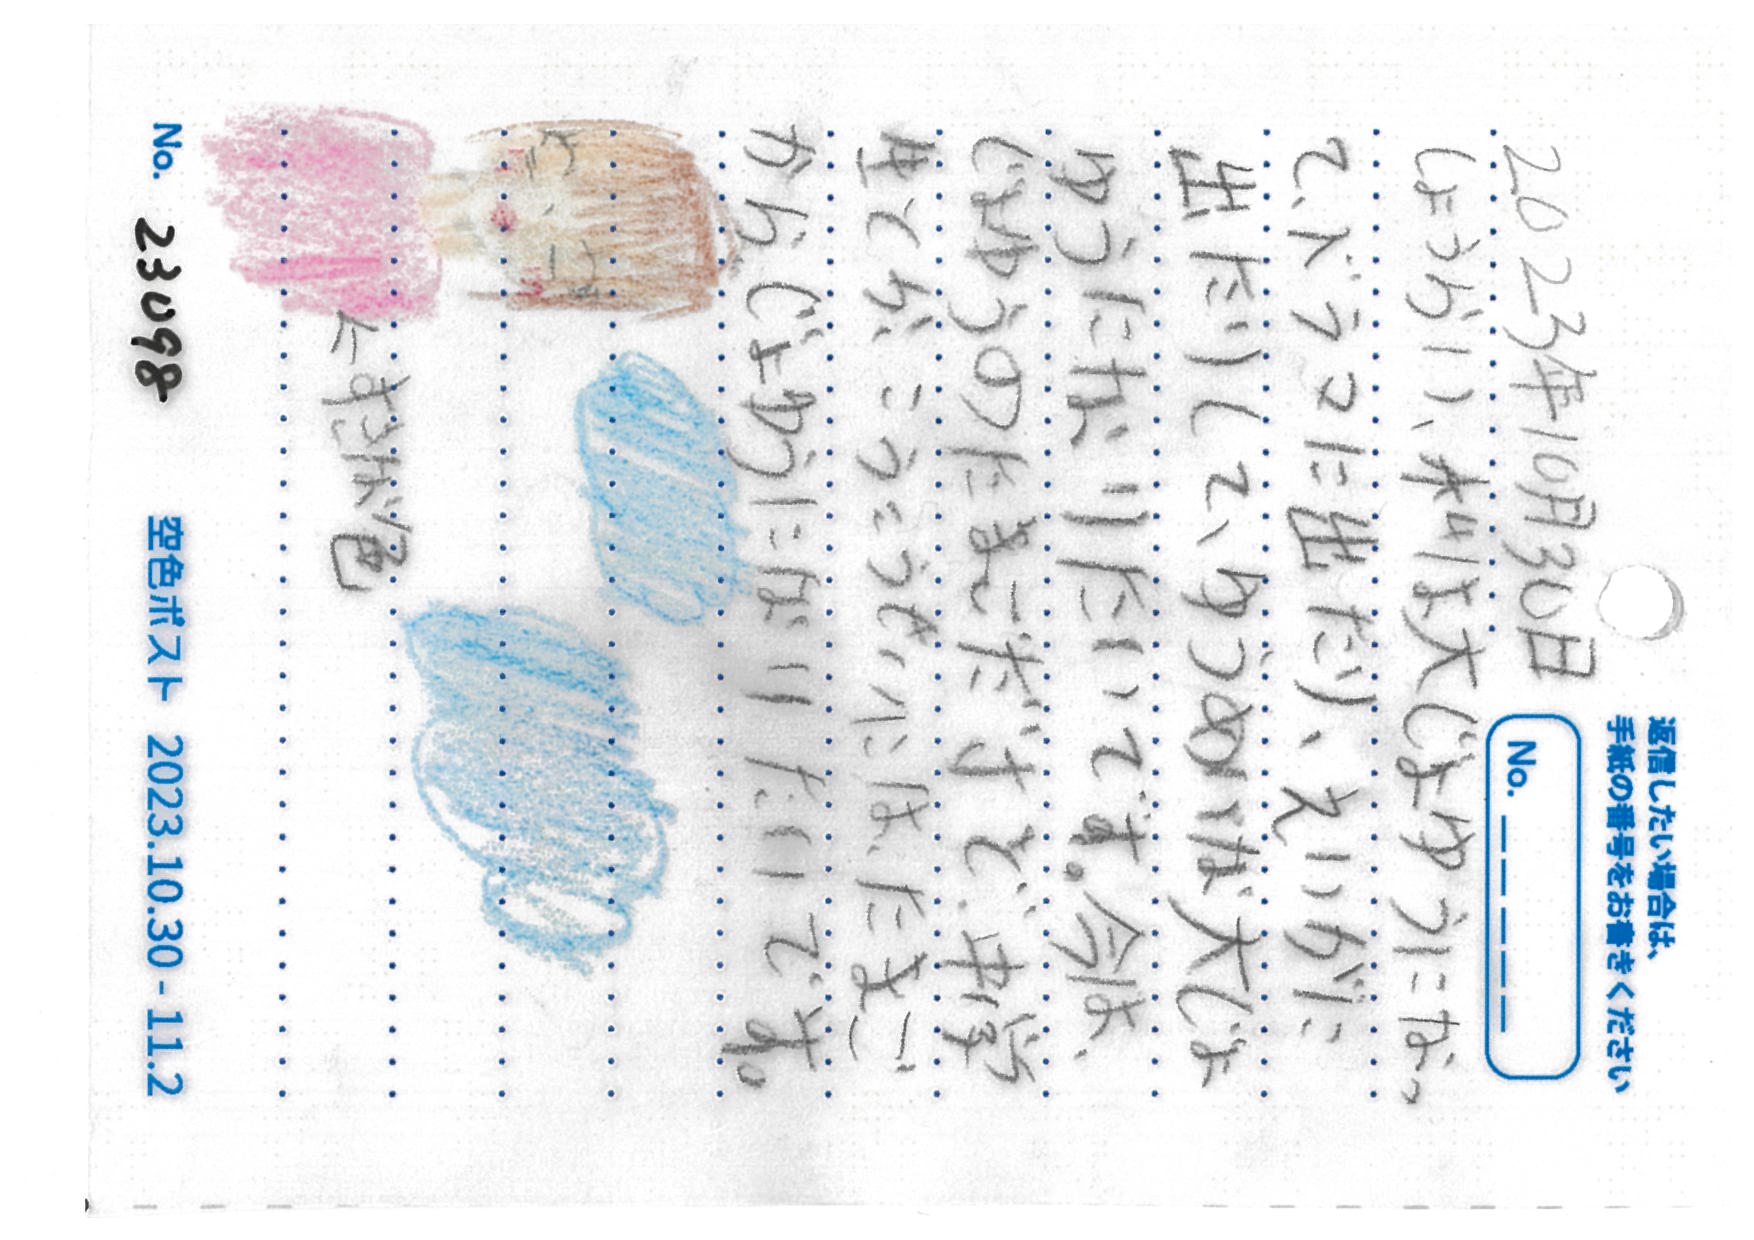 返信したい場合は、
手紙の番号をお書きください
No. _ _ _ _ _
2023年10月30日
しょうらい、私は大じょゆうになっ
て、ドラマに出たり、えいがに
出たりして、ゆうめいな大じょ
ゆうになりたいです。今は、
じょゆうのたまごだけど、中学
生とか、こうこうせいには、たまご
からじょゆうになりたいです。
←すきな色
No. 23098
空色ポスト 2023.10.30 - 11.2